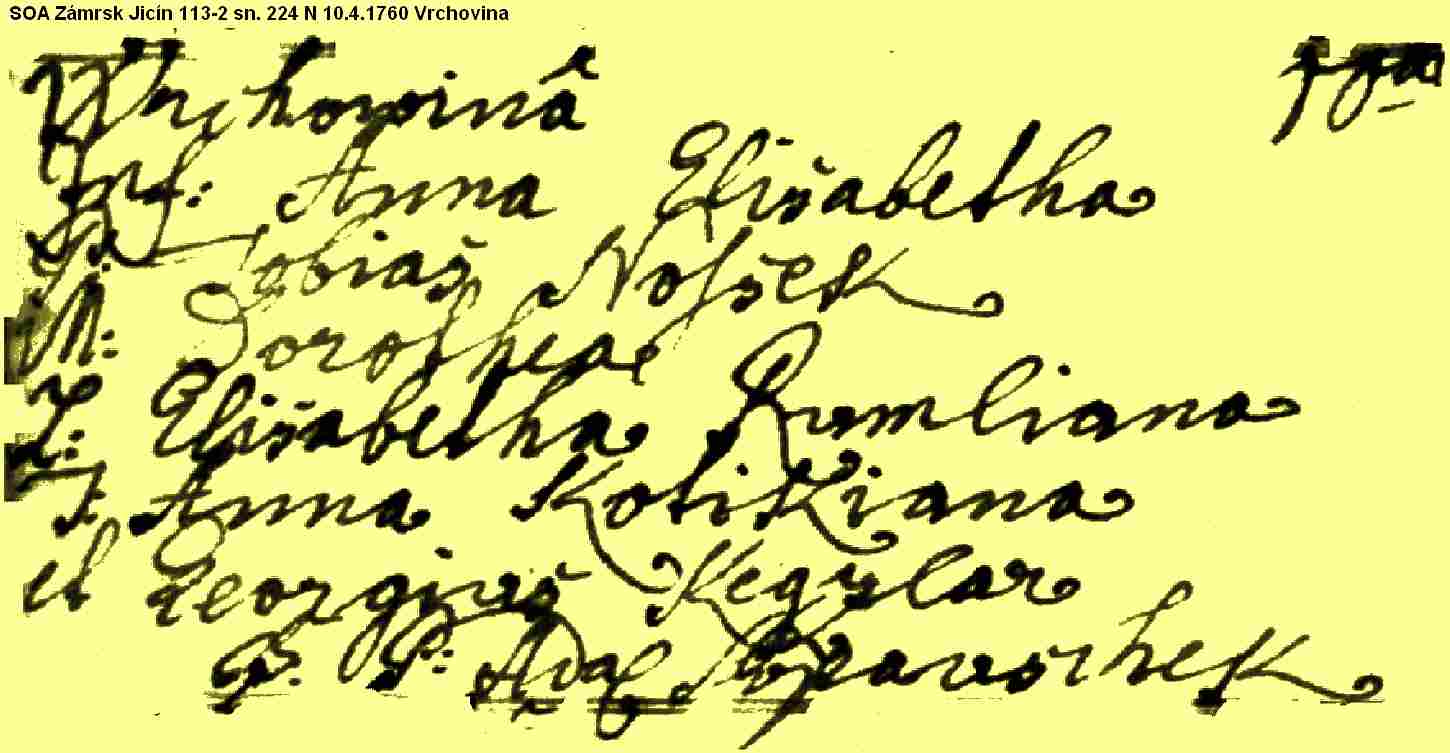 SOA Zámrsk Jicín 113-2 sn. 224 N 10.4.1760 Vrchovina
Wrchowina
Inf: Anna Elisabetha
P: Tobias Nossek
M: Dorothea
L: Elisabetha Rumliana
T: Anna Kotikiana
et Georgius Kegzlar
B. P: